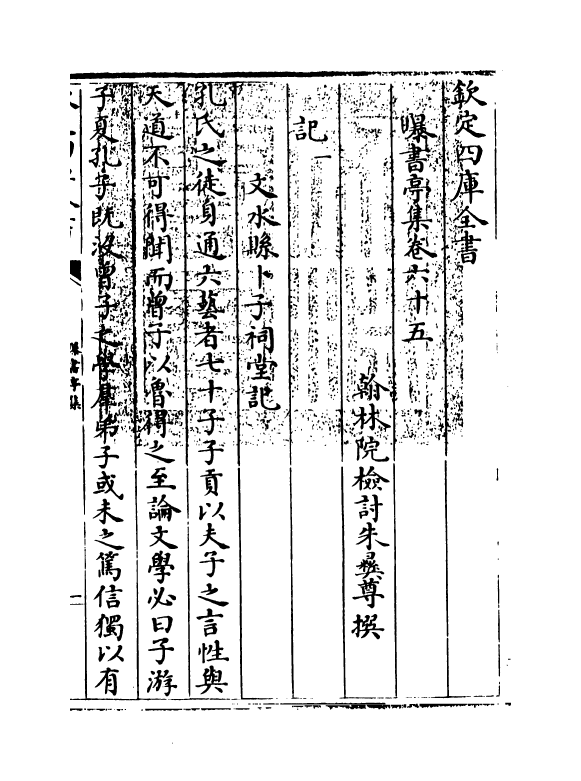 欽定四庫全書
曝書亭集卷六十五
翰林院檢討朱彝尊撰
記一
文水縣卜子祠堂記
孔氏之徒身通六藝者七十子子貢以夫子之言性與
天道不可得聞而曾子以魯得之至論文學必曰子游
子夏孔子既沒曾子之學羣弟子或未之篤信獨以有